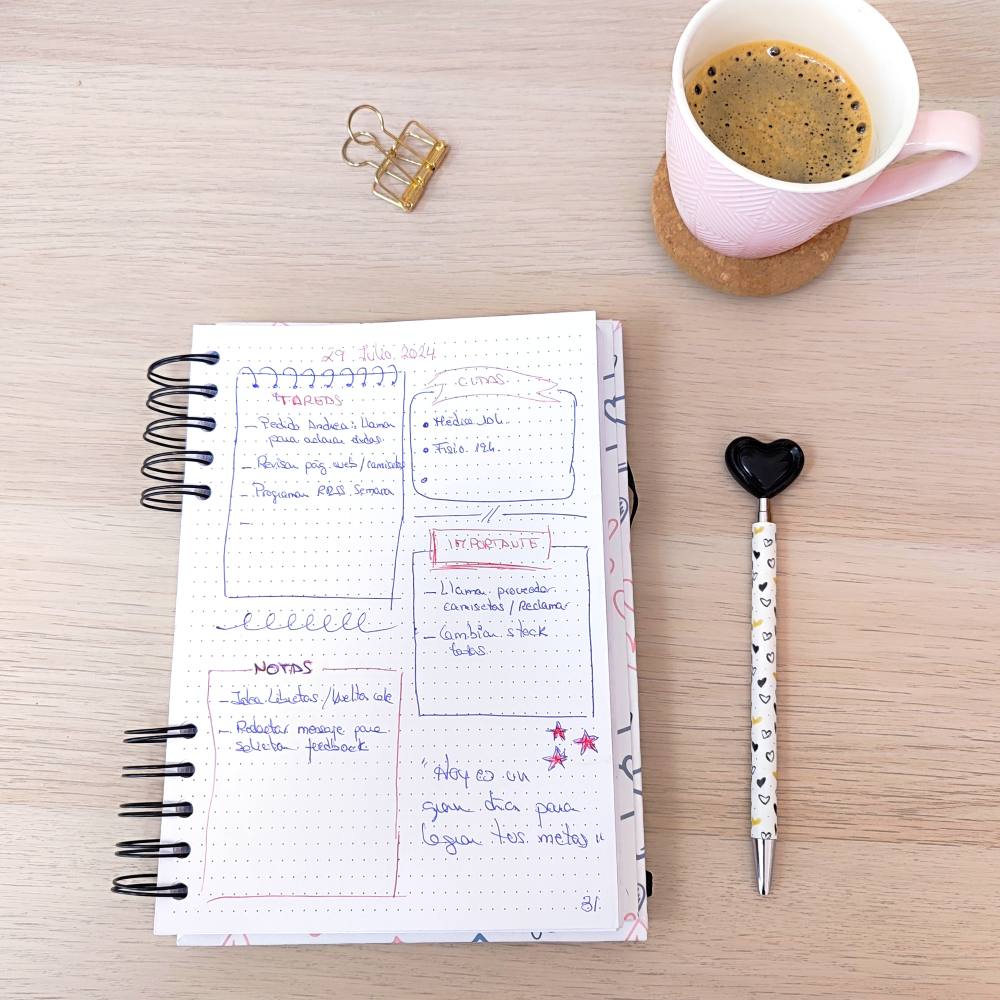 29 Julio 2024
TAREAS
- Pedido Andrea: Llamar
para aclarar dudas.
- Revisar pág web/camisetas
- Programar RRSS Semana
-
CITAS
• Médico 10h.
• Fisio 19h.
•
IMPORTANTE
- Llamar proveedor
camisetas / Reclamar
- Cambiar stock
NOTAS
- Idea Libretas / Vuelta cole
- Redactar mensaje para
solicitar feedback
"Hoy es un
gran día para
lograr tus metas"
31.